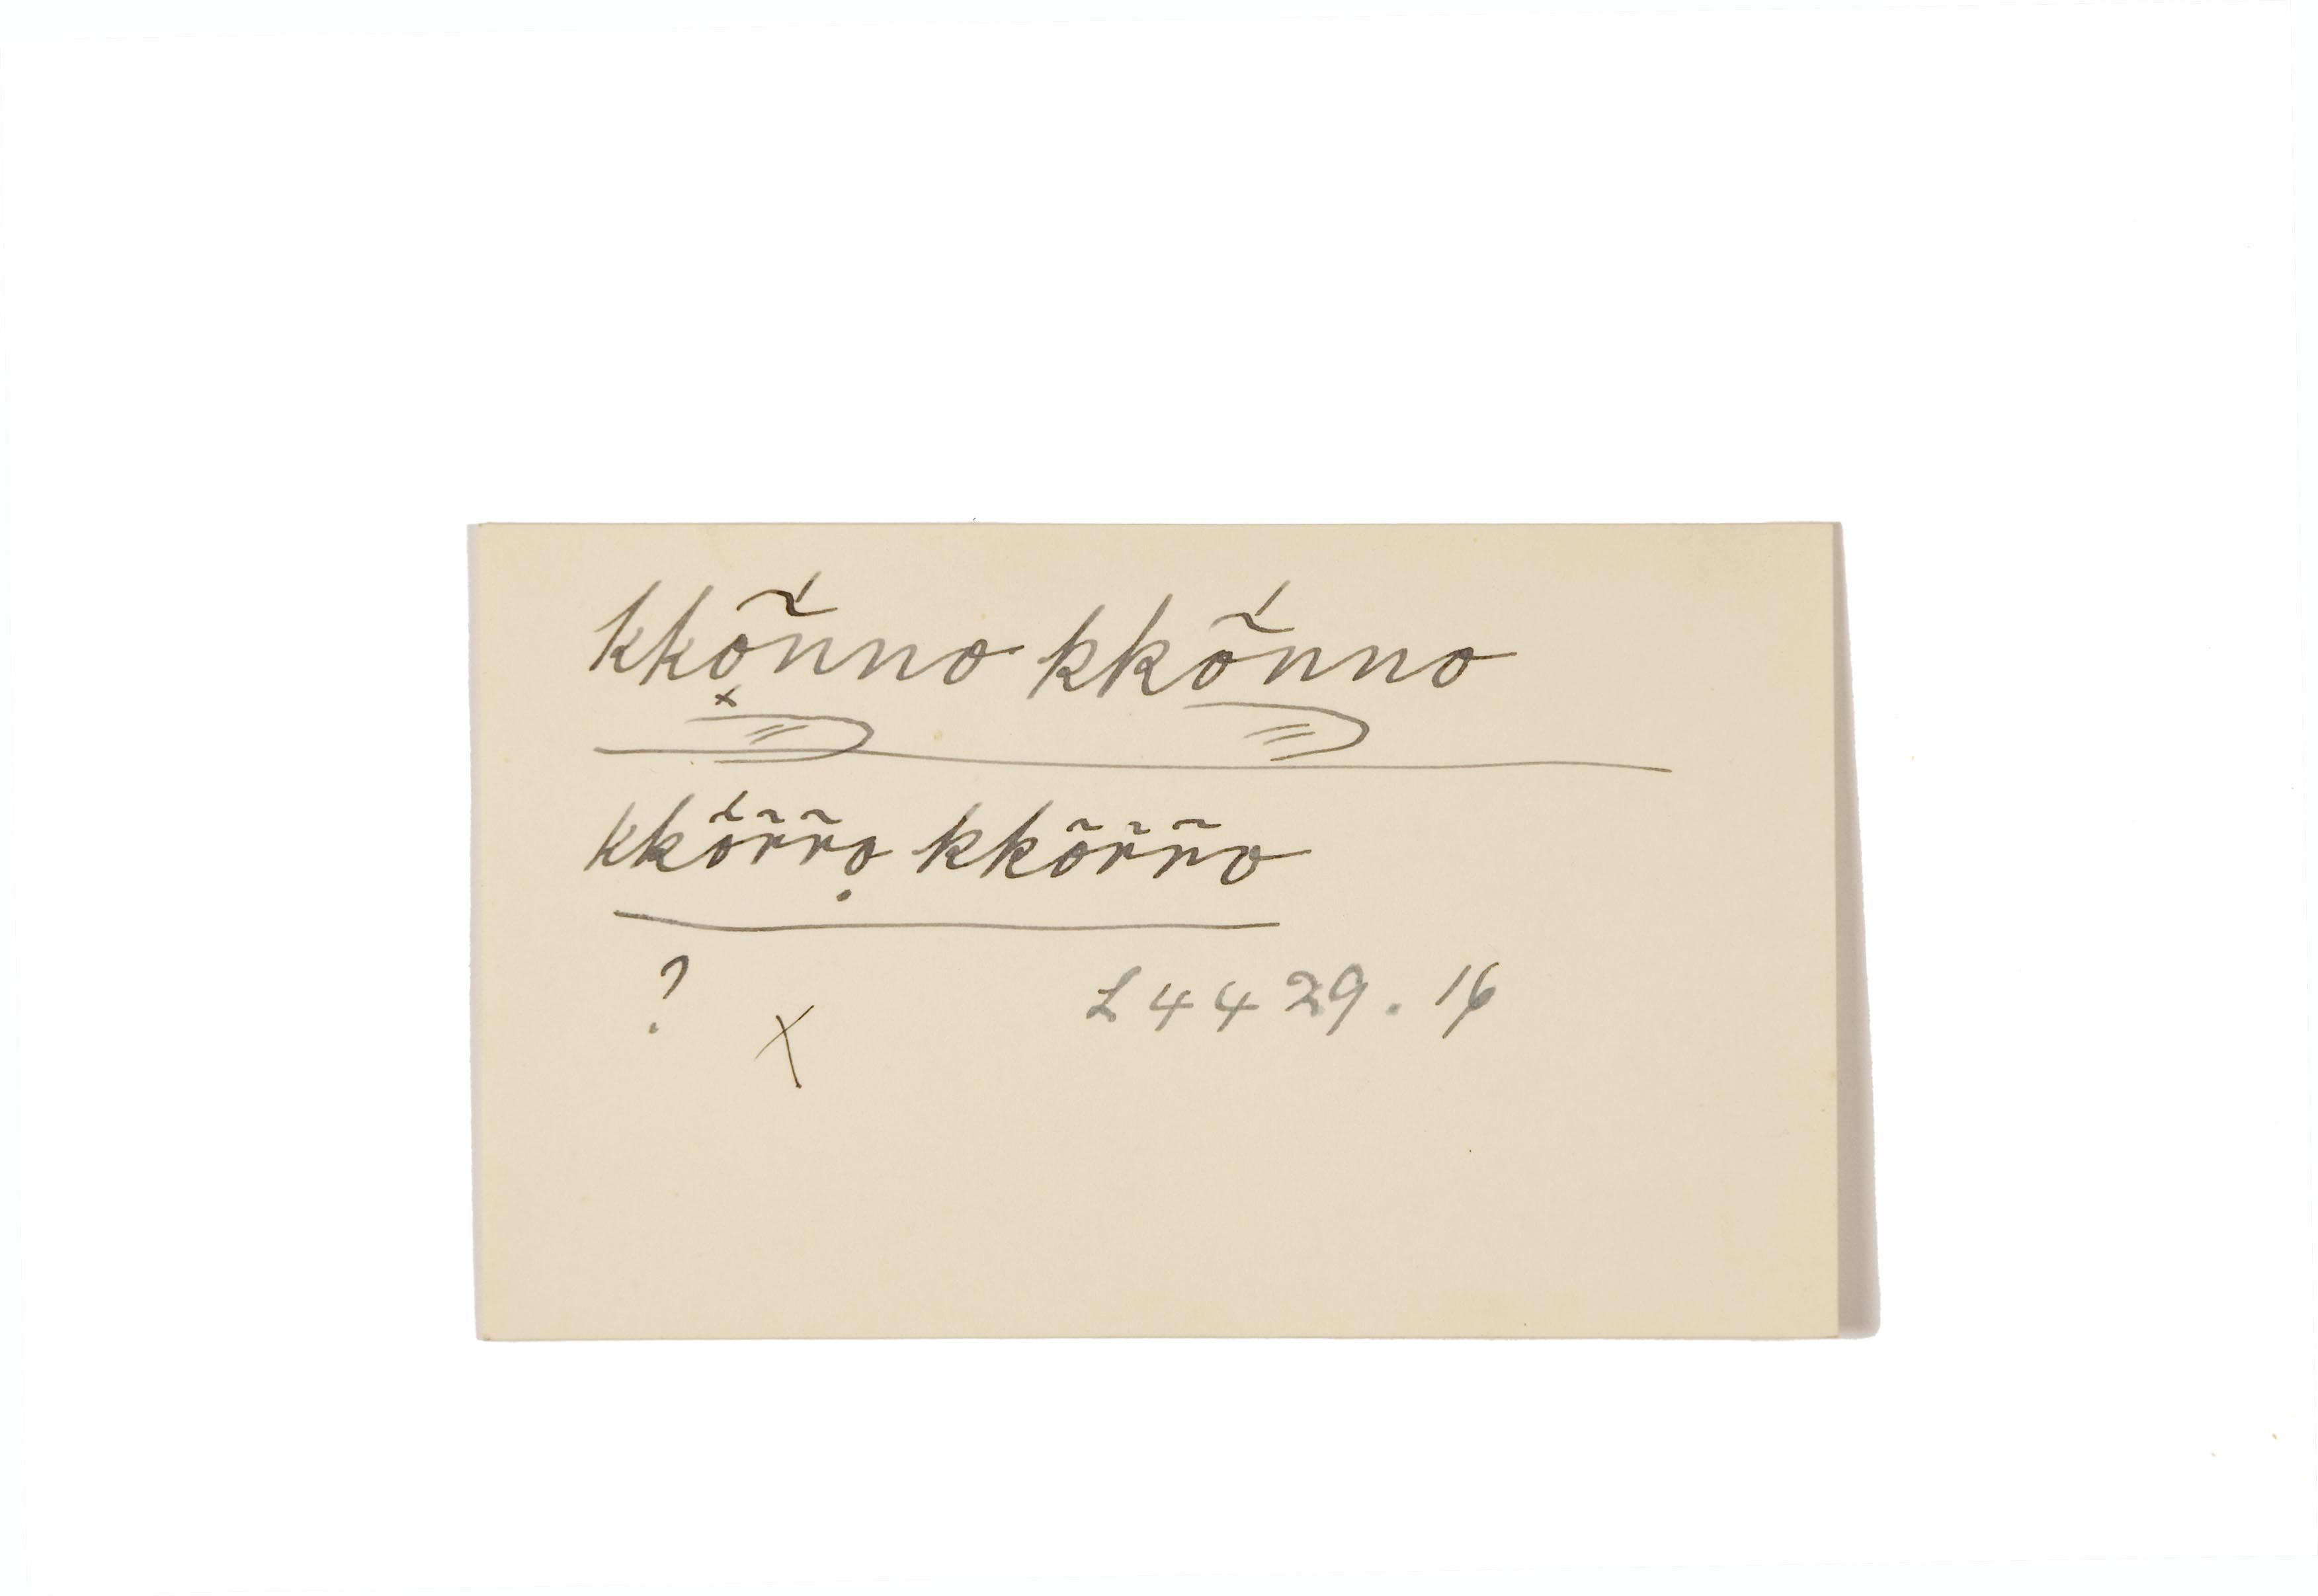 kkṍ̬nno kkṍnno
kkṍr̃r̃ọ kkõr̃r̃o
? X L4429.16